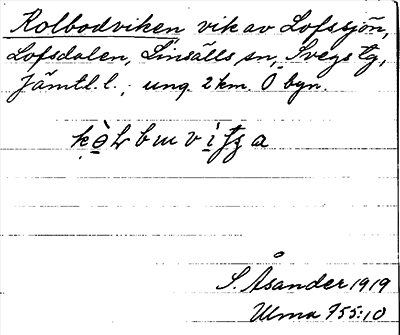 Kolbodviken vik av Lofssjön,
Lofsdalen, Linsälls sn, Svegs tg,
Jämtl. l., ung. 2 km. O byn.
S. Åsander 1919
Ulma 755:10